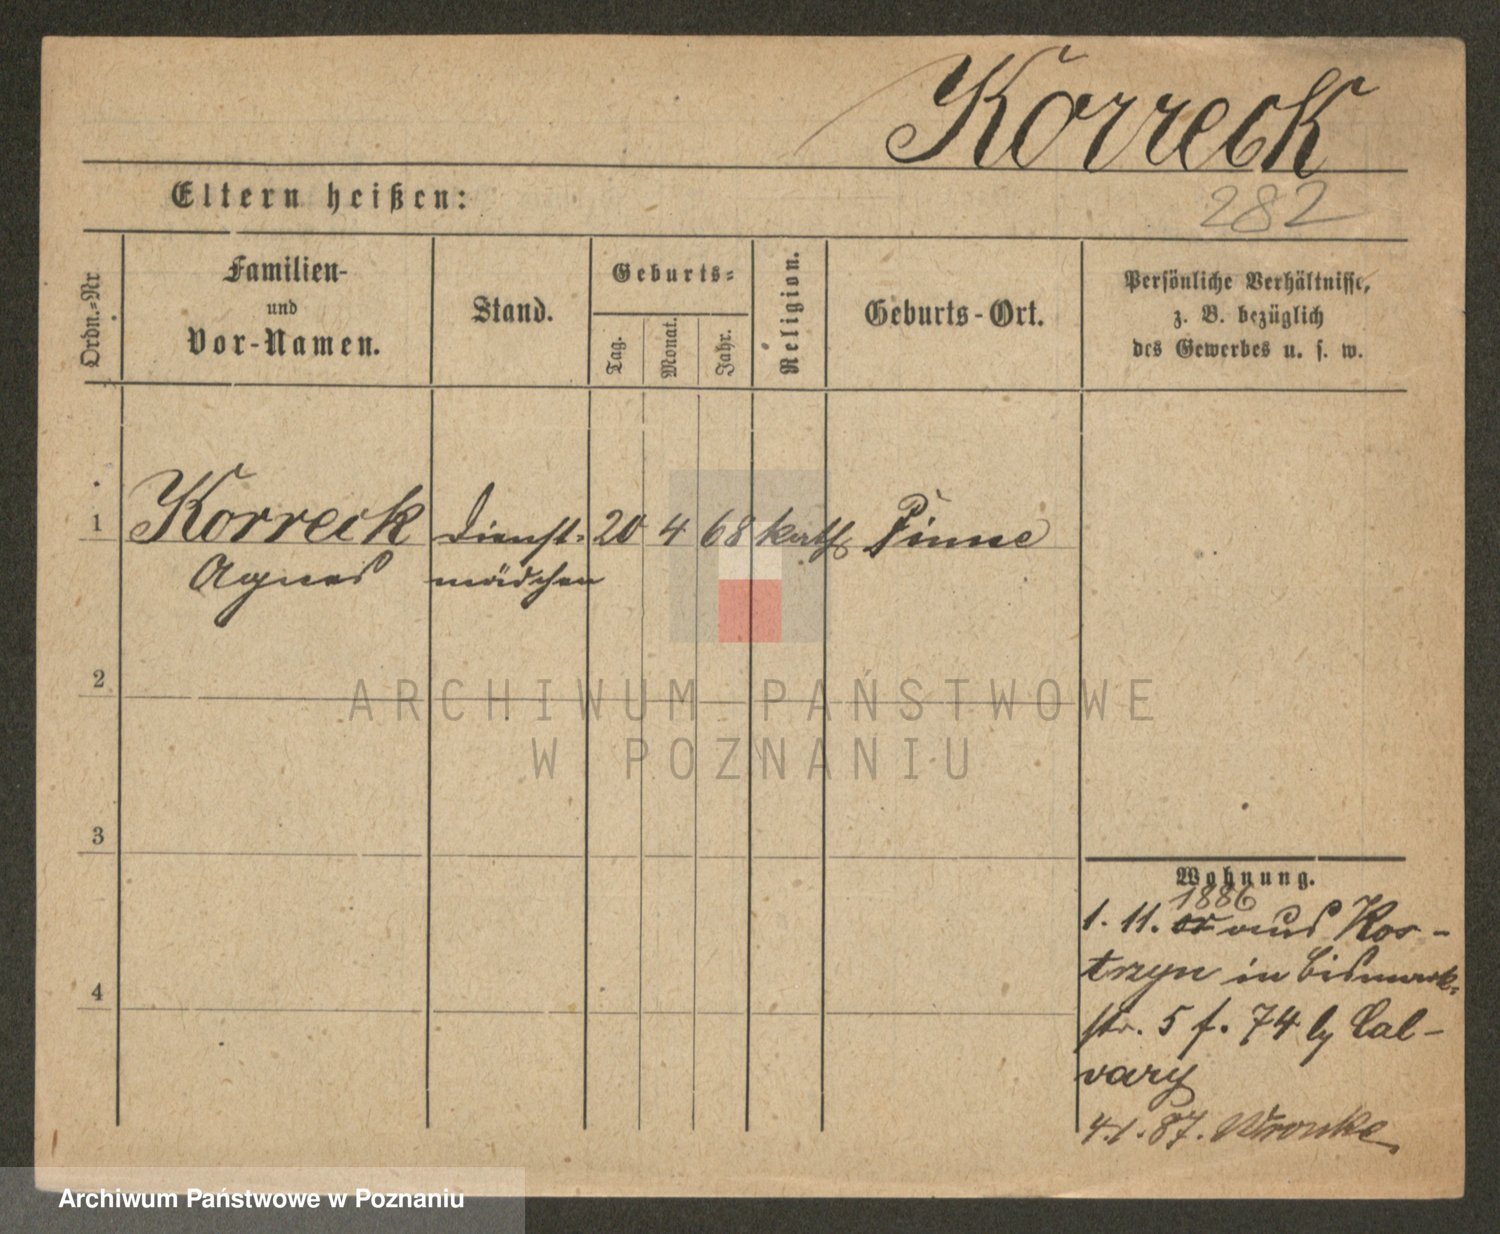 Korreck
Eltern heißen:
282
Ordn.-Nr
Familien-
und
Vor-Namen.
Stand.
Geburts-
Tag.
Monat.
Jahr.
Religion.
Geburts-Ort.
Persönliche Verhältnisse,
z. B. bezüglich
des Gewerbes u. s. w.
1
Korreck Dienst- 20 4 68 kath Pinne
Agnes mädchen
2
ARCHIWUM PAŃSTWOWE
W POZNANIU
3
Wohnung.
1886
1. 11. aus Kos-
trzyn in Bismark-
str. 5 f. 74 by Cal-
vary
4
4.1.87. Wronke
Archiwum Państwowe w Poznaniu